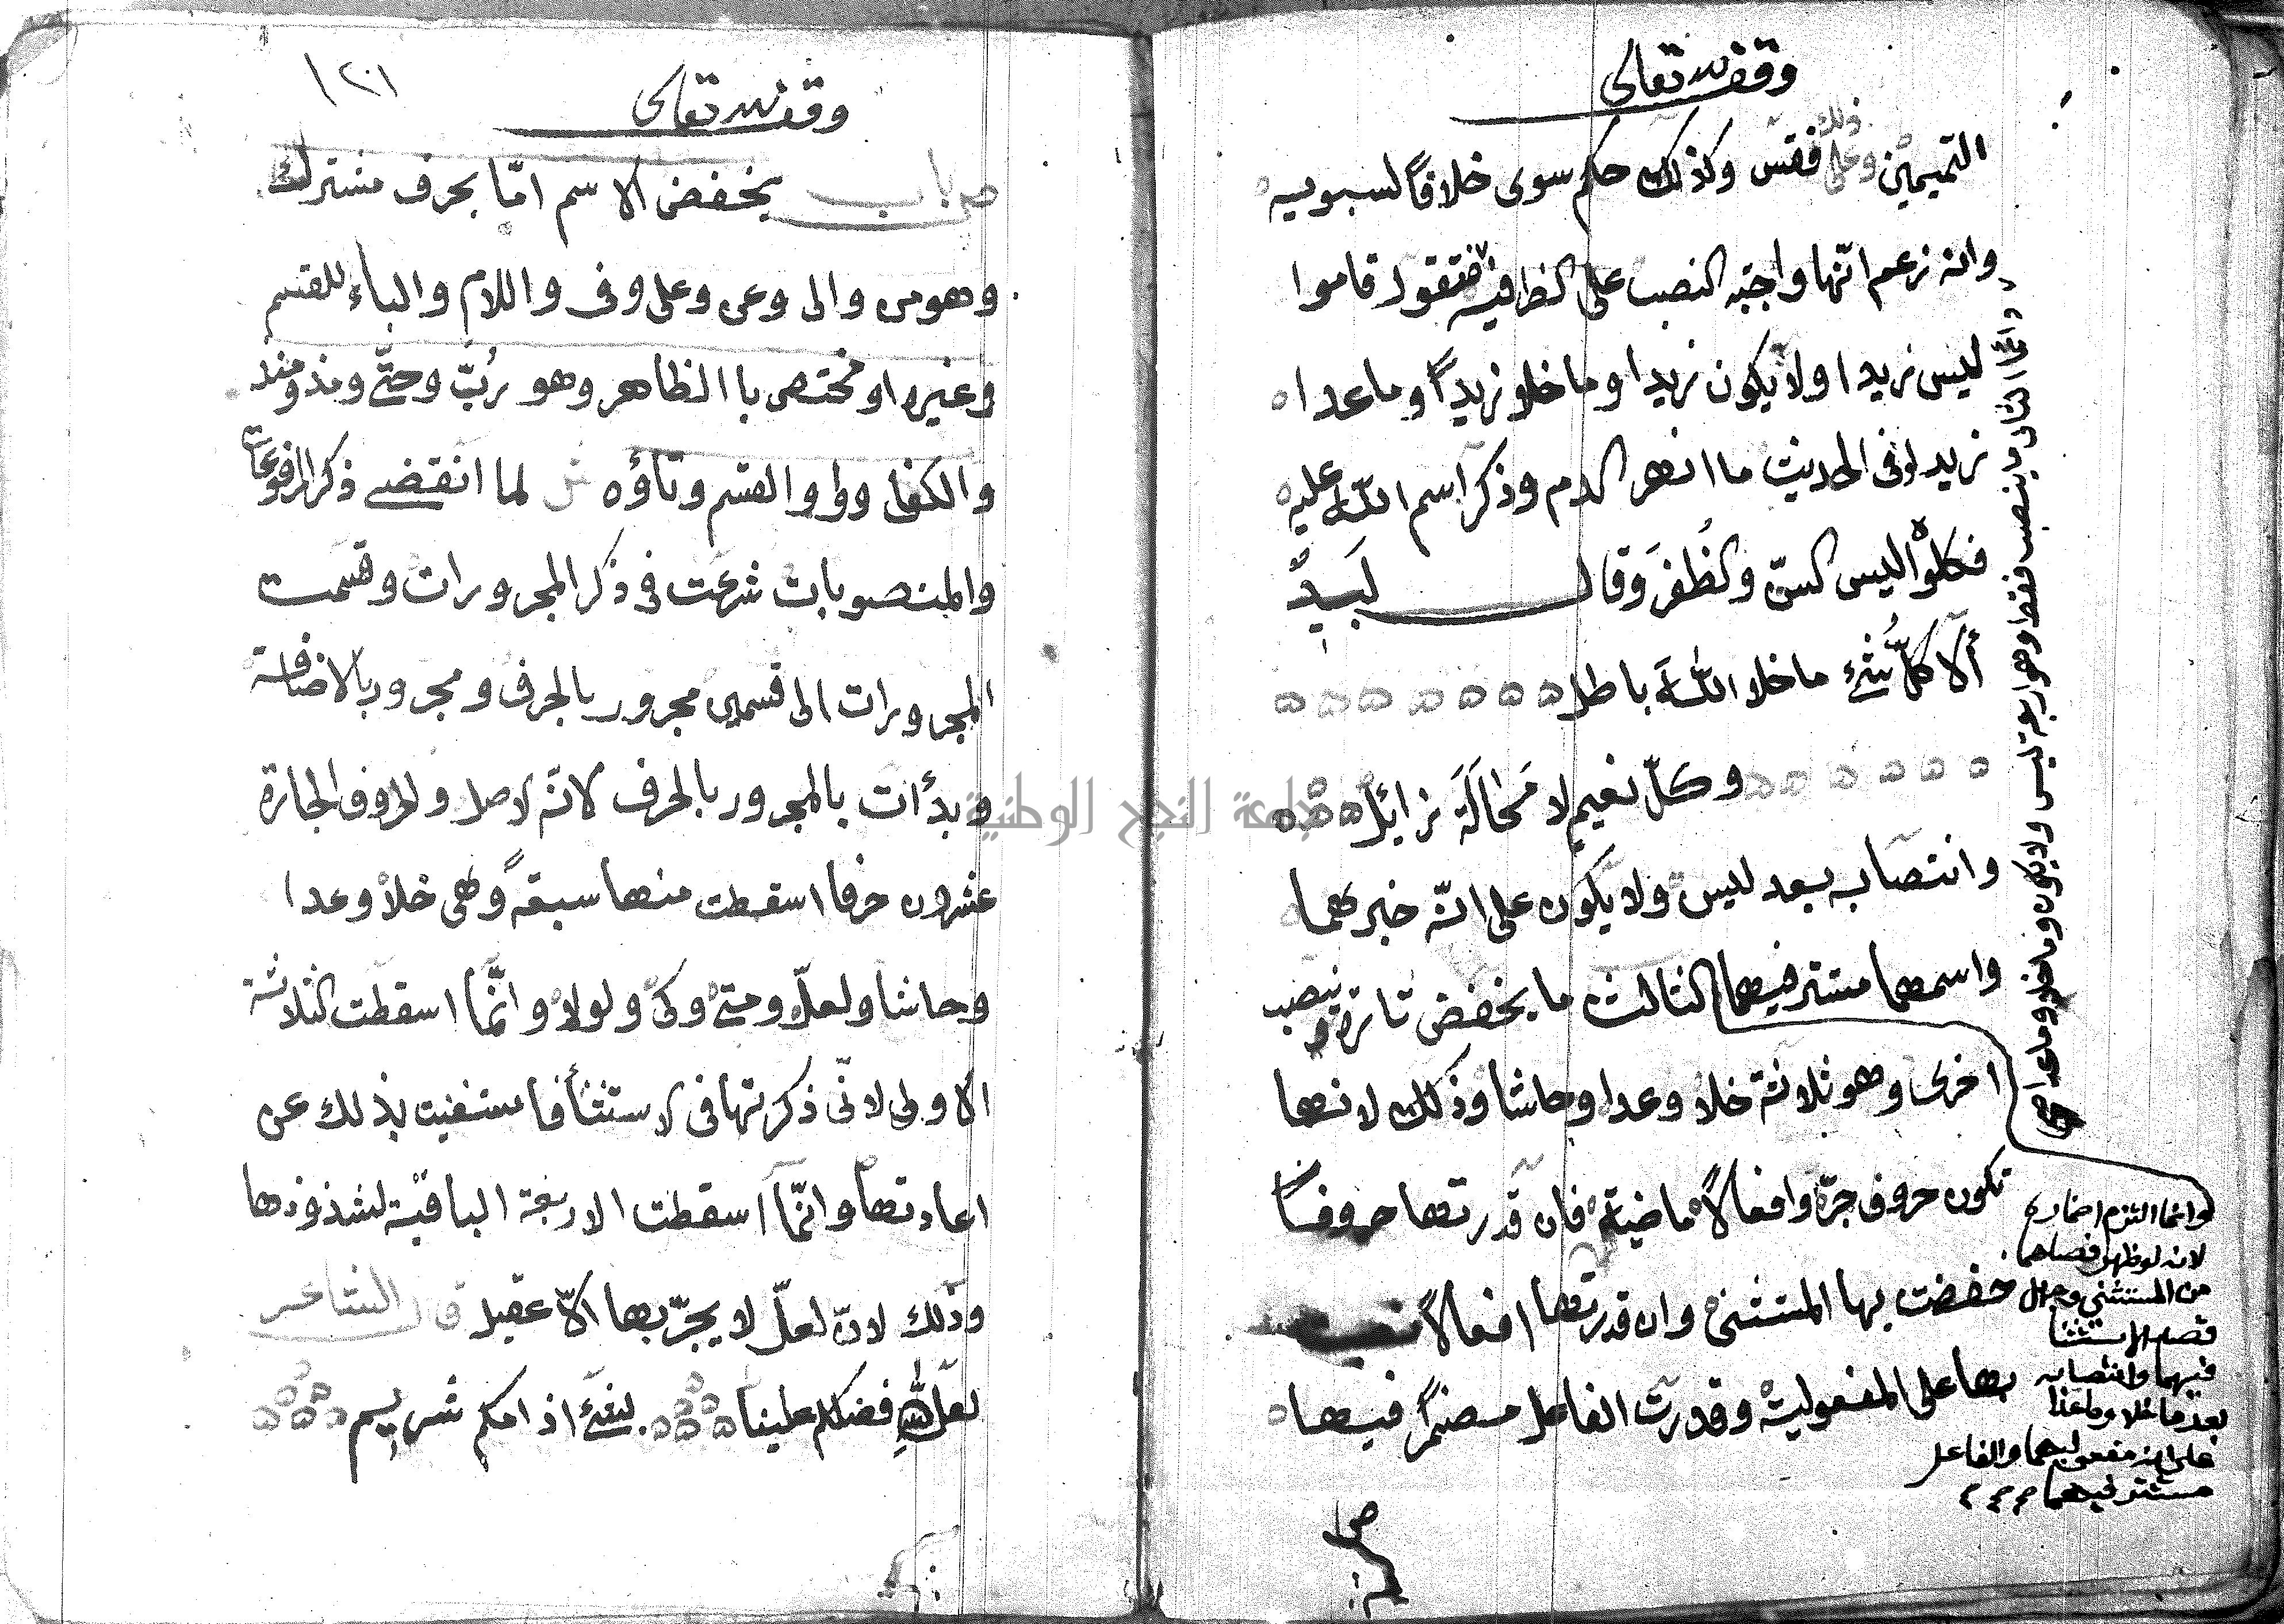 وقف لله تعالى
التميميين وعلى ذلك فقس وكذلك حكم سوى خلافاً لسيبويه
وانه زعم انّها واجبة النصب على الظرفية فتقول قاموا
ليس زيدا ولا يكون زيدا وما خلا زيداً وما عدا
زيدا وفي الحديث ما انهر الدم وذكر اسم الله عليه
فكلوا ليس السنّ والظُفرَ وقال لَبيدٌ
ألا كلُّ شئء ما خلا اللهَ باطل
وكلّ نعيمٍ لا مَحَالَةَ زائِلُ
وانتصابه بعد ليس ولا يكون على انّه خبرهما
واسمهما مستتر فيهما الثالث ما يخفض تارة وينصب
اخرى وهو ثلاثة خلا وعدا وحاشا وذلك لانها
تكون حروف جرّ وافعالاً ماضية فان قدرتها حروفاً
خفضت بها المستثنى وان قدرتها افعالاً نصبت
بها على المفعولية وقدرت الفاعل مضمراً فيها
وامّا الثاني ما ينصب فقط وهو اربعة ليس ولا يكون وما خلا وما عدا صح
وانما التزم اضماره
لانه لو ظهر فصلهما
من المستثنى وجهل
قصد الاستثنا
فيهما وانتصابه
بعد ما خلا وما عدا
على انه مفعولهما والفاعل
مستتر فيهما
وقف لله تعالى
١٢٠
ص باب يخفض الاسم امّا بحرف مشترك
وهو من والى وعن وعلى وفي واللام والباء للقسم
وغيره او مختص باالظاهر وهو رُبّ وحتّى ومذ ومنذ
والكاف وواو القسم وتاؤه ش لما انقضى ذكر المرفوعات
والمنصوبات شرعت في ذكر المجرورات وقسمت
المجرورات الى قسمين مجرور بالحرف ومجرور بالاضافة
وبدأت بالمجرور بالحرف لانّه الاصل والحروف الجارة
عشرون حرفا اسقطت منها سبعةً وهي خلا وعدا
وحاشا ولعلّ ومتى وكي ولولا وانّما اسقطت الثلاثة
الاولى لانّى ذكرتها في الاستثنأ فاستغنيت بذلك عن
اعادتها وانّما اسقطت الاربعة الباقية لشذوذها
وذلك لانّ لعلّ لا يجرّ بها الاّ عقيل قال الشاعر
لعلّ اللهِ فضلكم علينا بشئ اذ امكم شريم
جامعة النجاح الوطنية